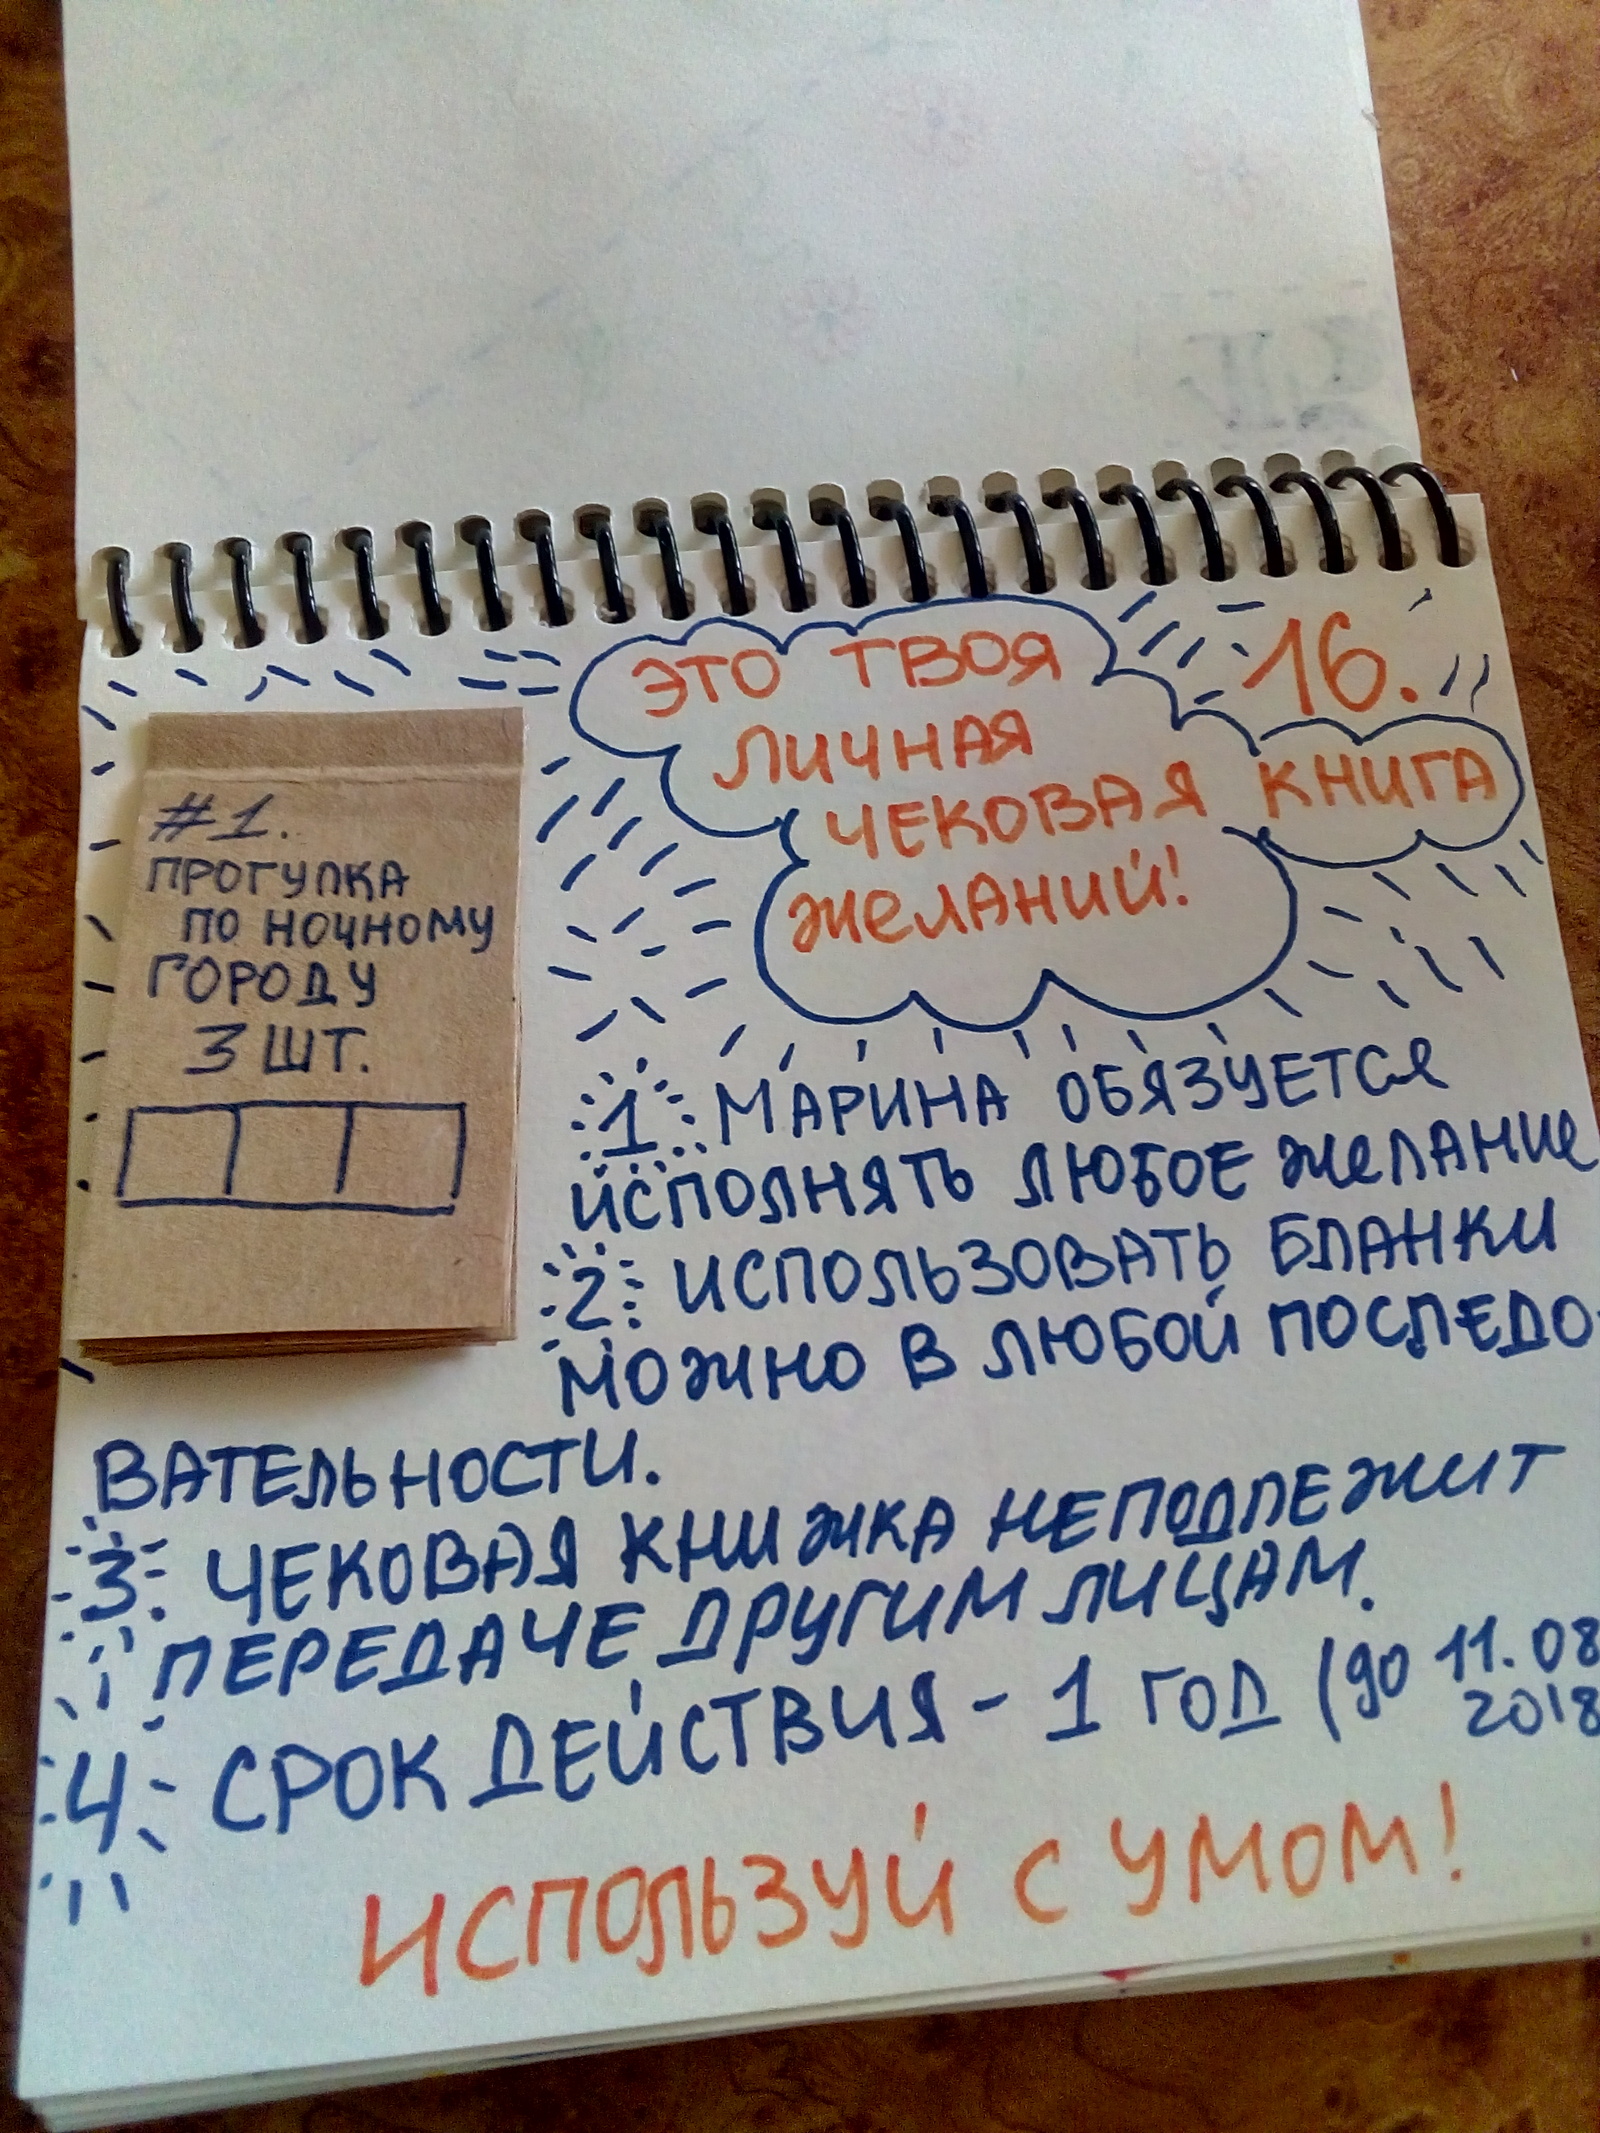 16.
ЭТО ТВОЯ
ЛИЧНАЯ
ЧЕКОВАЯ КНИГА
ЖЕЛАНИЙ!
#1.
ПРОГУЛКА
ПО НОЧНОМУ
ГОРОДУ
3 ШТ.
1 МАРИНА ОБЯЗУЕТСЯ
ИСПОЛНЯТЬ ЛЮБОЕ ЖЕЛАНИЕ
2 ИСПОЛЬЗОВАТЬ БЛАНКИ
МОЖНО В ЛЮБОЙ ПОСЛЕДО-
ВАТЕЛЬНОСТИ.
3. ЧЕКОВАЯ КНИЖКА НЕПОДЛЕЖИТ
ПЕРЕДАЧЕ ДРУГИМ ЛИЦАМ.
4 СРОК ДЕЙСТВИЯ - 1 ГОД (до 11.08
2018
ИСПОЛЬЗУЙ С УМОМ!